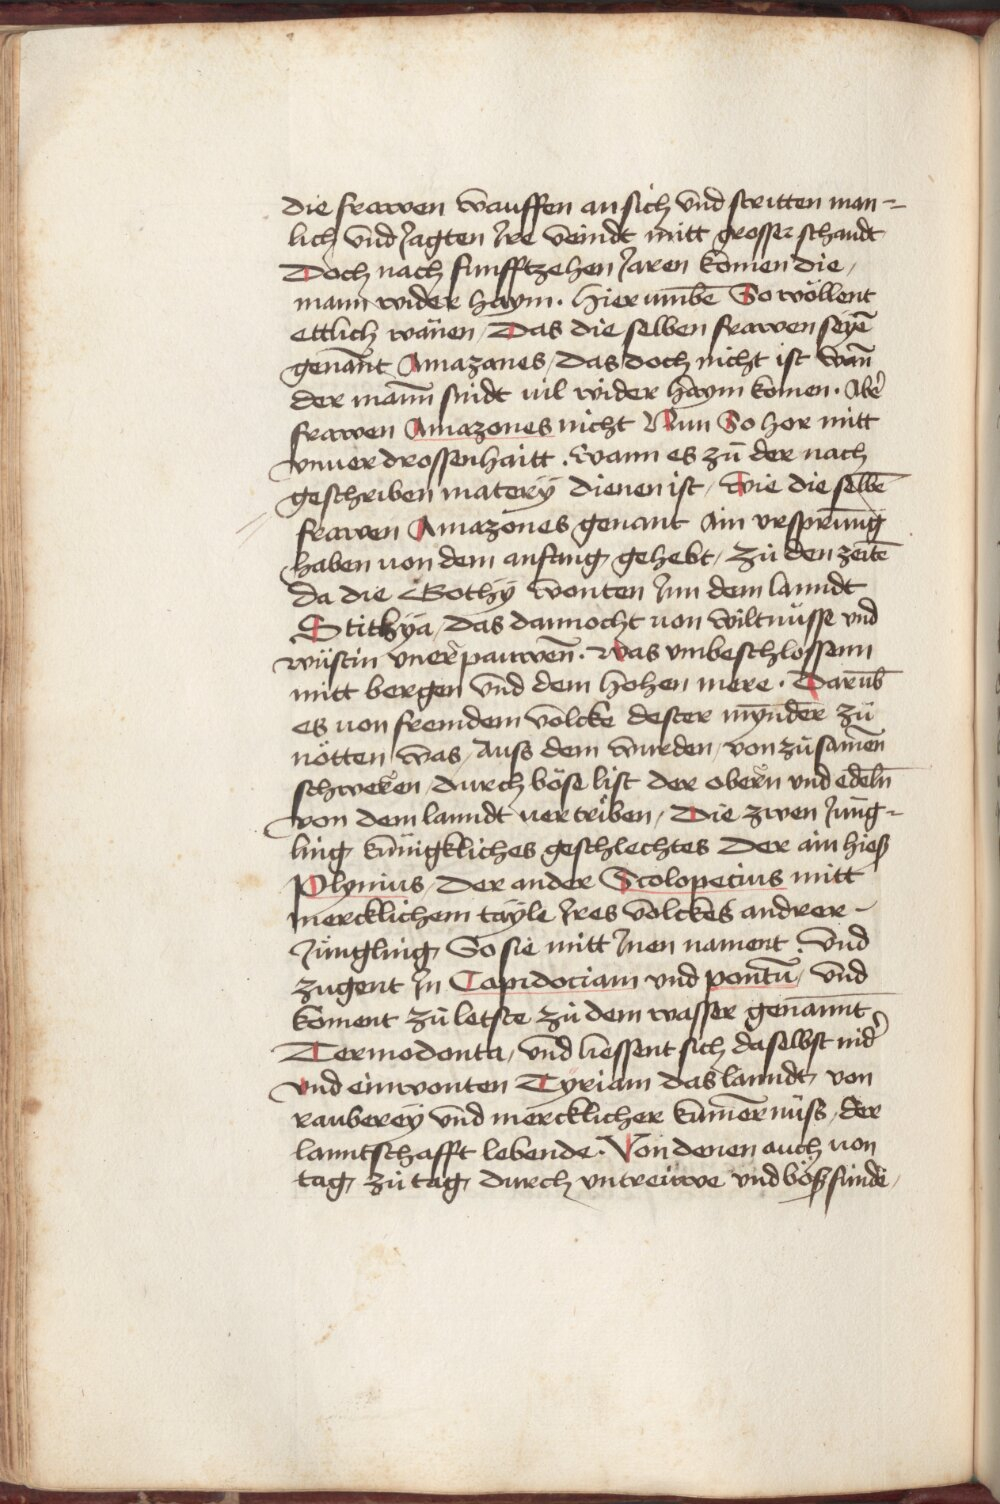 die frawen wauffen an sich vnd stritten man-
lich vnd Jagten Jre veindt mitt grosser schandt
Doch nach funfftzehen Jaren komen die
mann wider haym. Hierumbe So wöllent
ettlich wänen / Das die selben frawen seyē
genant Amazanes / das doch nicht ist wañ
der mann sindt uil wider haym komen. Aber
frawen Amazones nicht Nun So hor mitt
vnuerdrossenhaitt. wann es zů der nach
geschriben matery dienen ist / wie die selbē
frawen Amazones genant Ain vrsprung
haben von dem anfang gehebt / zů den zeitē
da die Gothÿ wonten Jnn dem lanndt
Stithÿa / Das dannocht von wiltnüsse vnd
wüstin vnerpauwen. was vmbeschlossenn
mitt bergen vnd dem hohen mere. Darūb
es von fremdem volcke dester mynder zů
nötten was / Auss dem wurden / von zůsamen
schweren / durch böse list der obern vnd edeln
von dem lanndt vertriben / Die zwen Jüng-
ling künigkliches geschlechtes Der ain hieß
Plynius / der ander Scolopetius mitt
mercklichem tayle Jres volckes andrer-
Jüngling So sie mitt Jnen nament. vnd
zugent Jn Capidociam vnd pontū / vnd
koment zů letste zů dem wasser genannt
Termodonta / vnd liessent sich daselbst nider
vnd einwonten Tyriam das lanndt / von
rauberey vnd mercklicher kümernüss / der
lanntschafft lebende. Von denen auch von
tag / zů tag / durch vntreüwe vnd böß fünde /